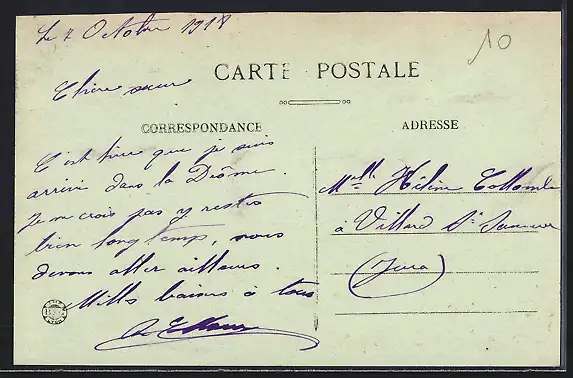 Le 7 Octobre 1918
10
Chère sœur
CARTE POSTALE
CORRESPONDANCE
C'est hier que je suis
arrivé dans la Drôme.
Je ne crois pas y rester
bien longtemps, nous
devons aller ailleurs.
Mille baisers à tous
ADRESSE
Melle Hélène
à Villard St Sauveur
(Jura)